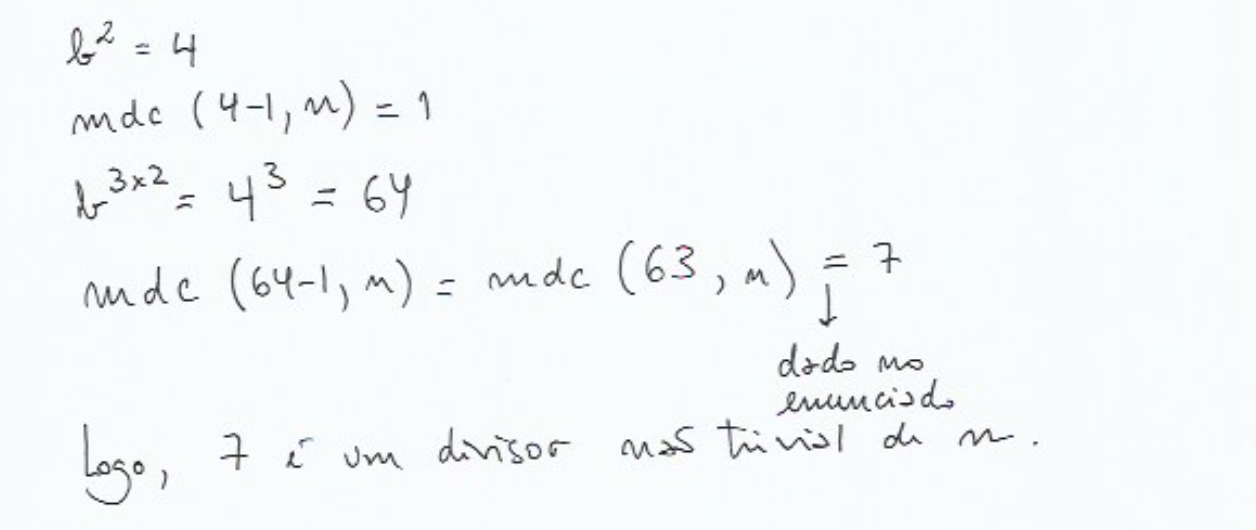 b² = 4
mdc (4-1, n) = 1
b^{3x2} = 4³ = 64
mdc (64-1, n) = mdc (63, n) = 7
↓
dado no
enunciado
Logo, 7 é um divisor não trivial de n.